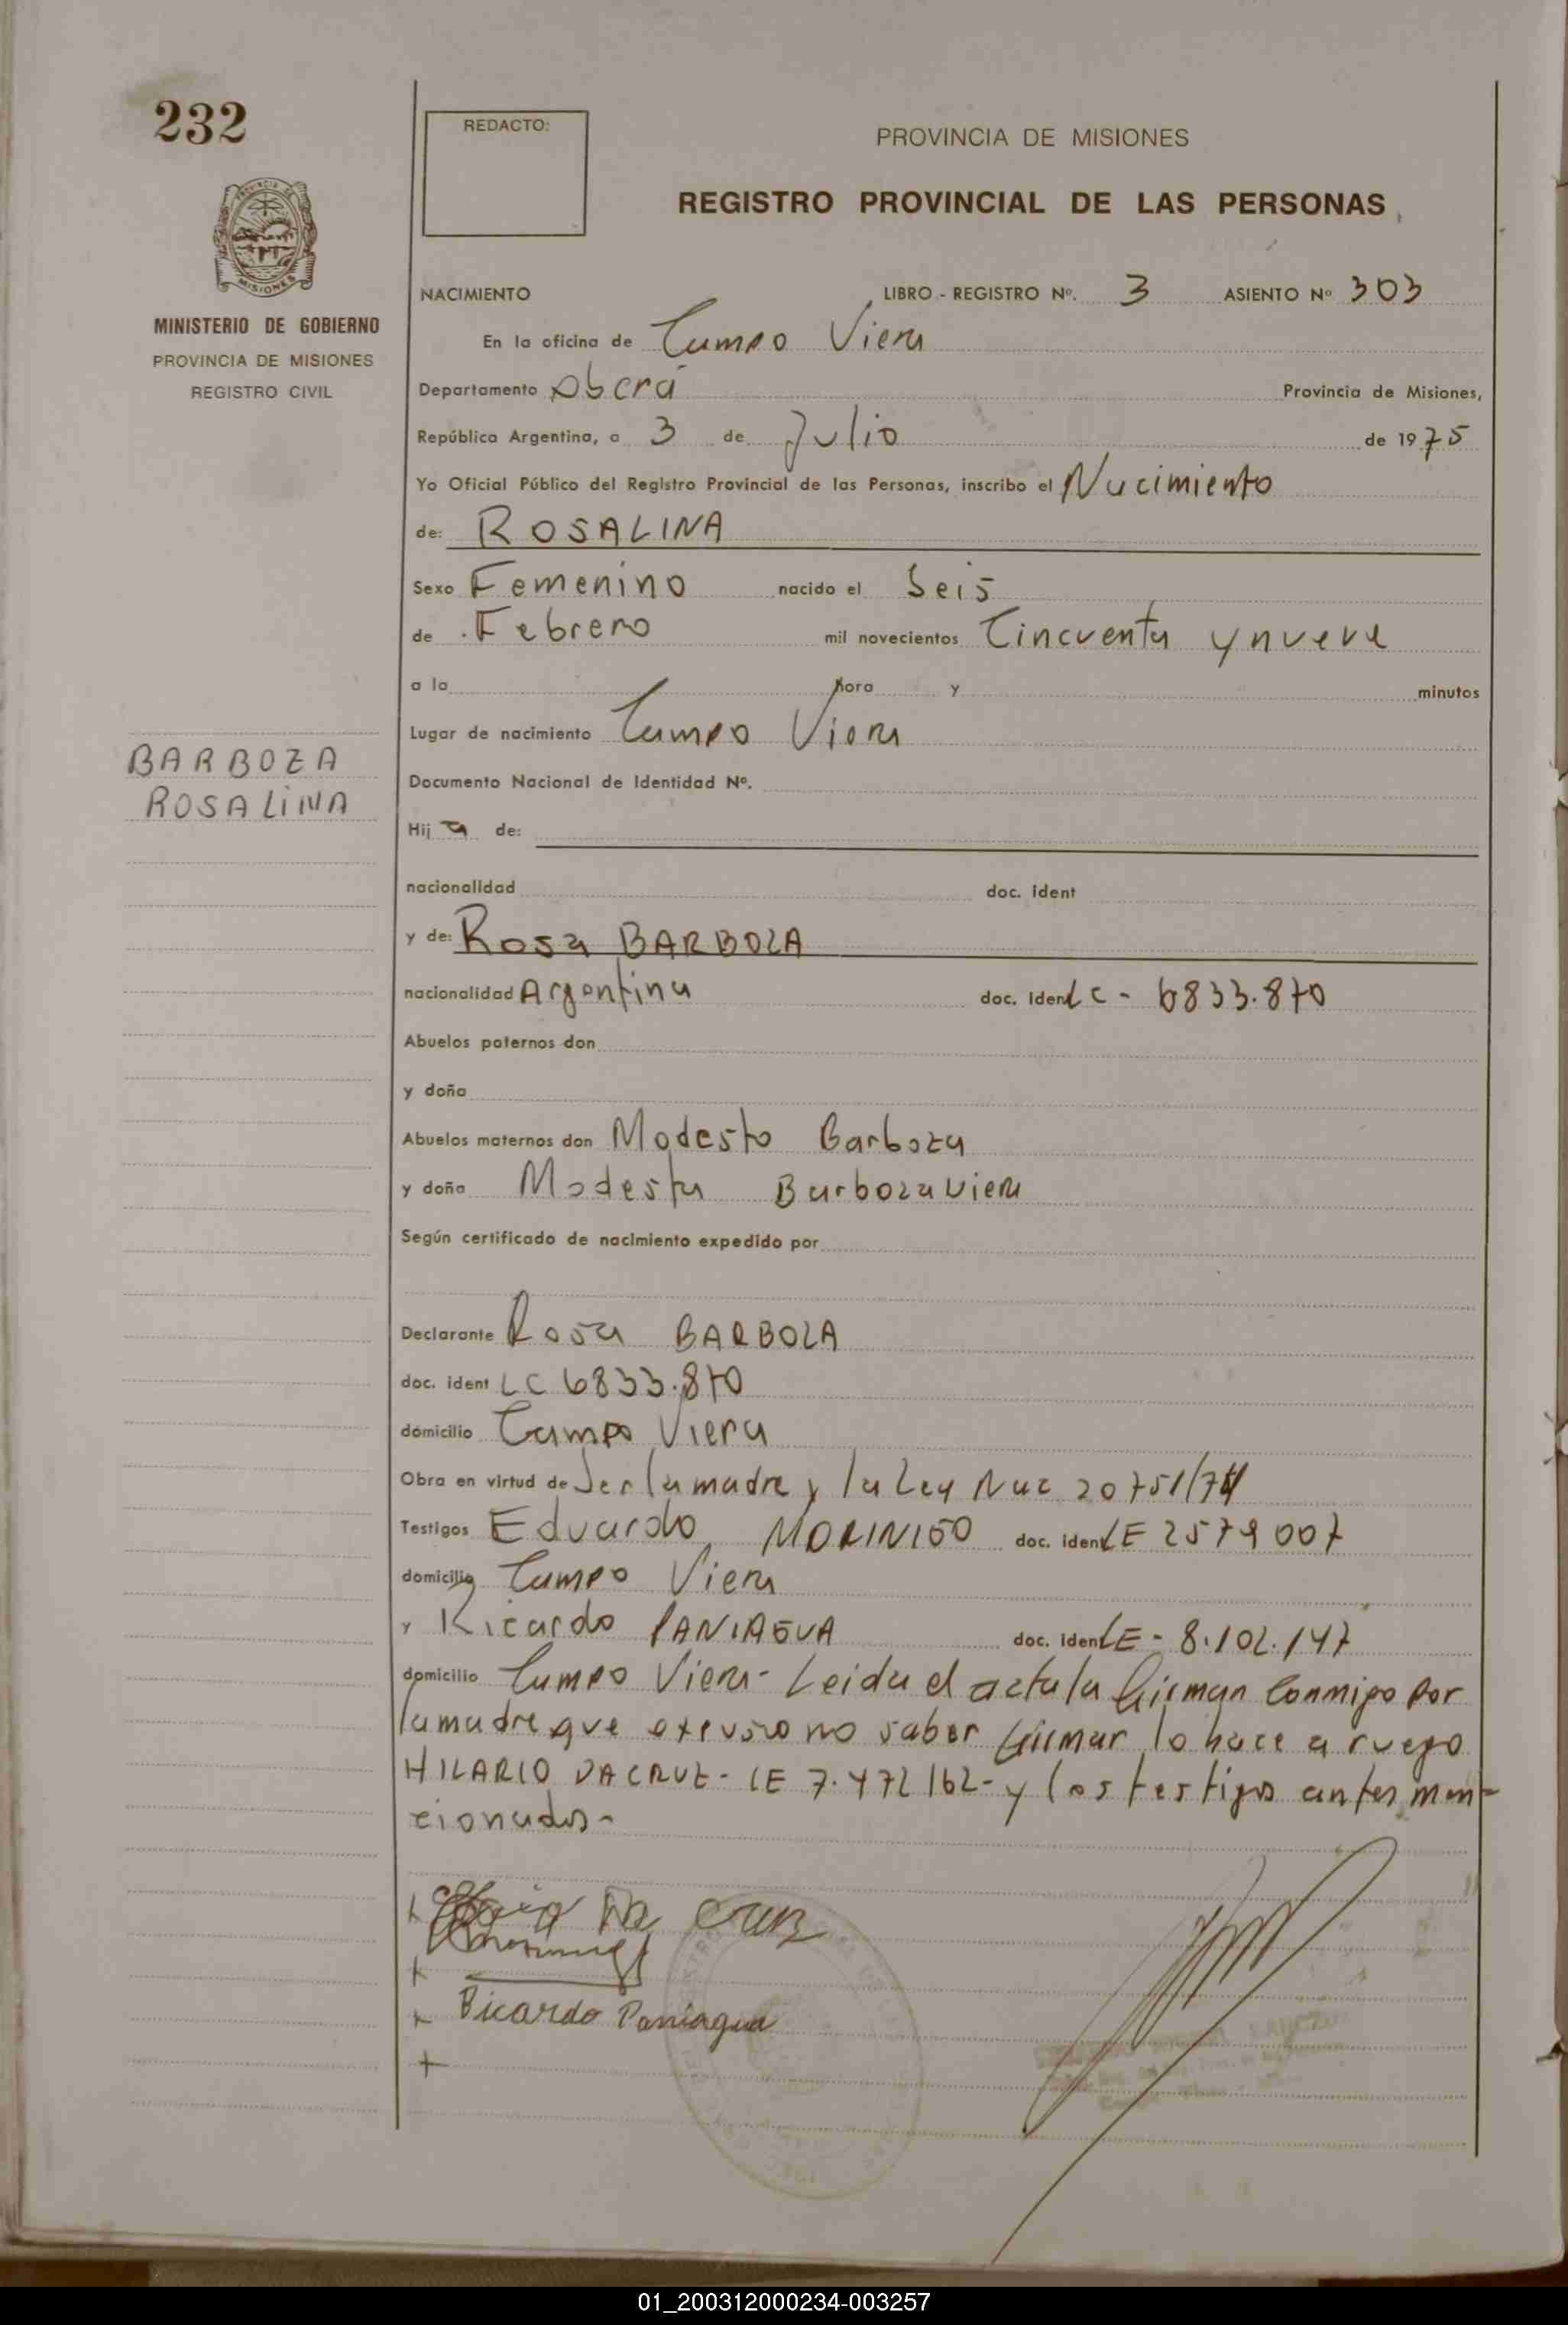 232
REDACTO:
PROVINCIA DE MISIONES
REGISTRO PROVINCIAL DE LAS PERSONAS
MISIONES
MINISTERIO DE GOBIERNO
PROVINCIA DE MISIONES
REGISTRO CIVIL
NACIMIENTO LIBRO - REGISTRO Nº. 3 ASIENTO Nº 303
En la oficina de Campo Viera
Departamento Oberá Provincia de Misiones,
República Argentina, a 3 de Julio de 1975
Yo Oficial Público del Registro Provincial de las Personas, inscribo el Nacimiento
de: ROSALINA
Sexo Femenino nacido el Seis
de Febrero mil novecientos Cincuenta y nueve
a la hora y minutos
Lugar de nacimiento Campo Viera
BARBOZA
ROSALINA
Documento Nacional de Identidad Nº.
Hija de:
nacionalidad doc. ident
y de: Rosa BARBOZA
nacionalidad Argentina doc. ident LC - 6833.870
Abuelos paternos don
y doña
Abuelos maternos don Modesto Barboza
y doña Modesta Barboza Viera
Según certificado de nacimiento expedido por
Declarante Rosa BARBOZA
doc. ident LC 6833.870
domicilio Campo Viera
Obra en virtud de Ser la madre y la Ley Nac 20751/74
Testigos Eduardo doc. ident LE 2579007
domicilio Campo Viera
y Ricardo PANIAGUA doc. ident LE - 8.102.147
domicilio Campo Viera - Leida el acta la firman conmigo por
la madre que expuso no saber firmar lo hace a ruego
HILARIO DACRUZ - LE 7.472162 - y los testigos antes men-
cionados -
Da Cruz
Ricardo Paniagua
01_200312000234-003257